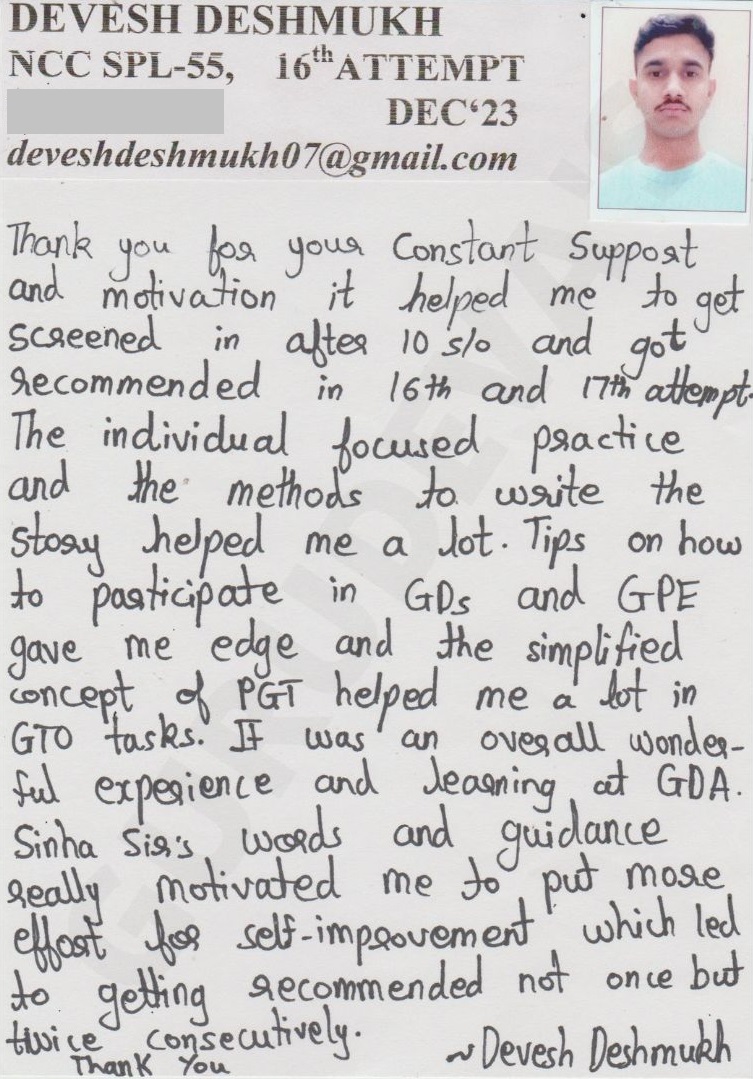 DEVESH DESHMUKH
NCC SPL-55, 16th ATTEMPT
DEC'23
deveshdeshmukh07@gmail.com
Thank you for your Constant Support
and motivation it helped me to get
screened in after 10 s/o and got
recommended in 16th and 17th attempt.
The individual focused practice
and the methods to write the
story helped me a lot. Tips on how
to participate in GDs and GPE
gave me edge and the simplified
concept of PGT helped me a lot in
GTO tasks. It was an overall wonder-
ful experience and learning at GDA.
Sinha Sir's words and guidance
really motivated me to put more
effort for self-improvement which led
to getting recommended not once but
twice consecutively.
Thank You
~Devesh Deshmukh